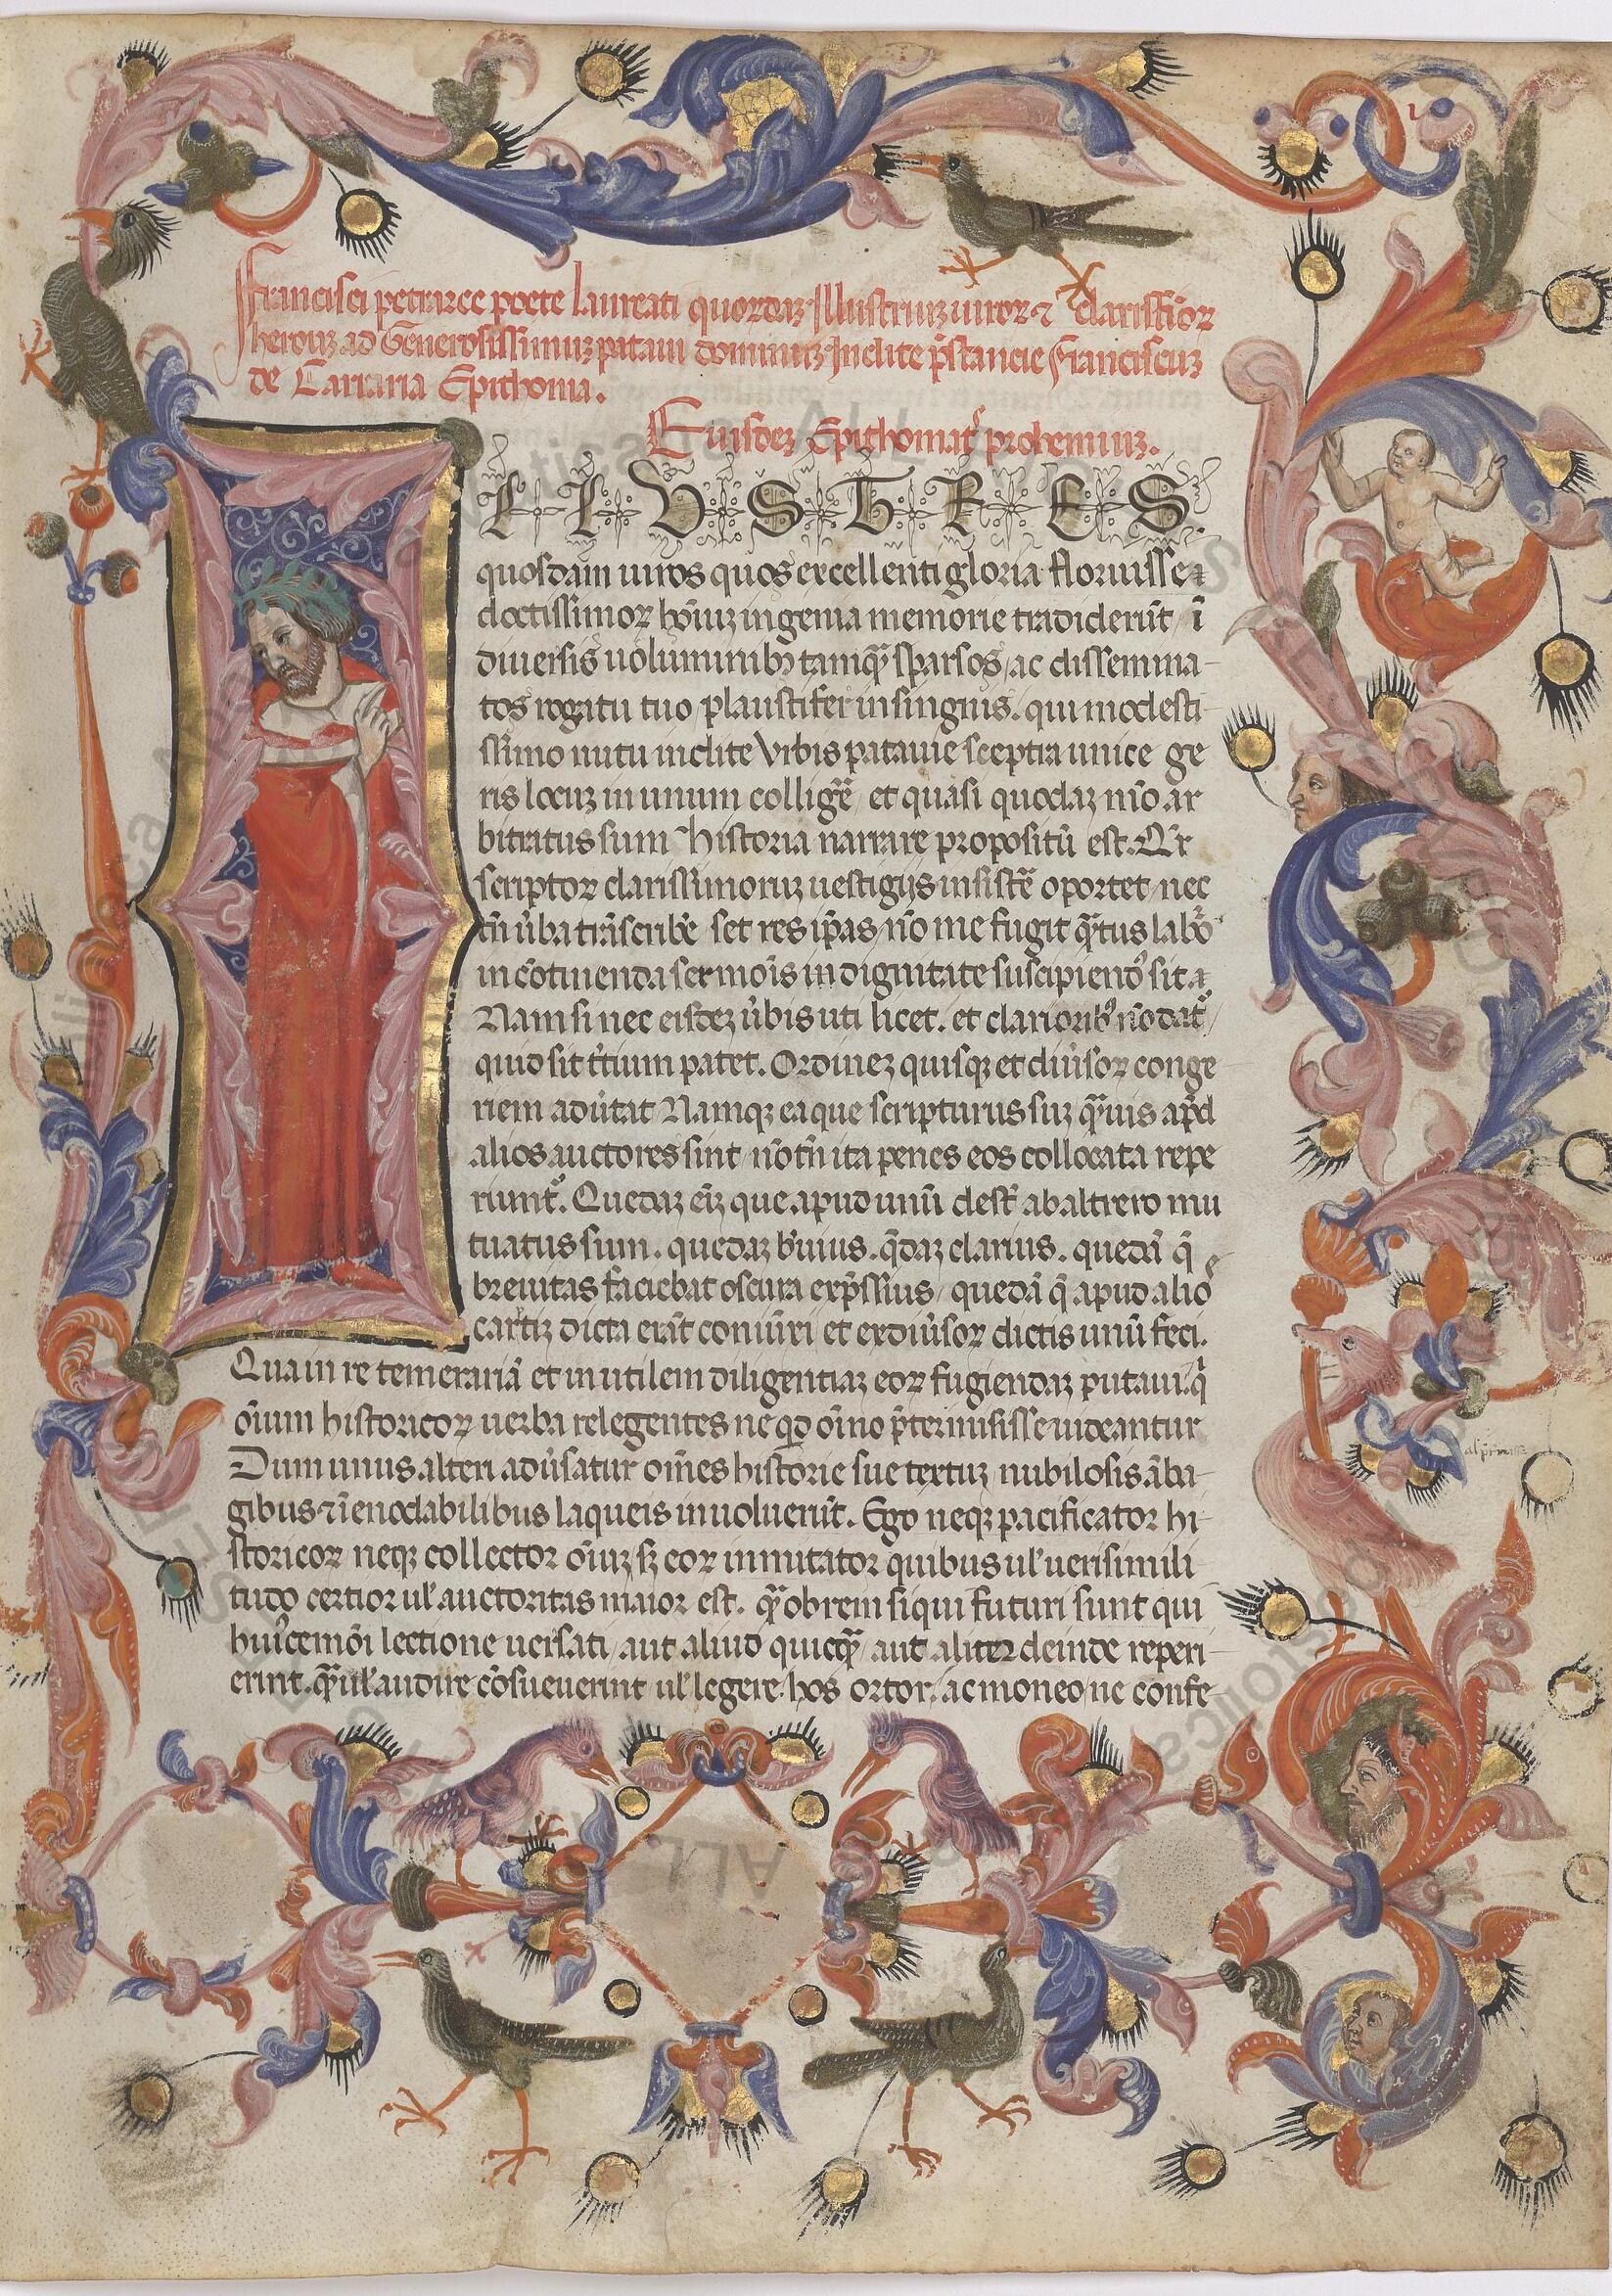 Francisci petrarce poete laureati quorūdaz Illustriuz uiror ⁊ clarissīor
heroūz ad Generosissimuz pataui dominuz Inclite p̄stancie Franciscuz
de Carraria Epithoma.
Eiusdez Epithomatꝭ prohemiuz.
ILLVSTRES.
quosdam uiros quos excellenti gloria floruisse ⁊
doctissimoꝝ hoı̄uz ingenia memorie tradiderūt ı̄
diuersis uoluminibꝫ tamqͣ sparsos, ac dissemina-
tos rogatu tuo plaustifer insignis. qui modesti-
ssimo nutu inclite Vrbis patauie sceptra unice ge
ris locuz in unum colligē et quasi quodaz mō ar
bitratus sum historia narrare propositū est. Qr̄
scriptoꝝ clarissimoruz uestigijs insistē oportet nec
tn̄ ūba trāscribē set res ip̄as nō me fugit qͣtus labō
in cōtinenda sermoı̄s indignitate suscipiendꝰ sit ⁊
Nam si nec eisdez ūbis uti licet. et clarioribꝰ nō dat̄
quid sit t̄tium patet. Ordinez quisqꝫ et diūsoꝝ conge
riem adūtat Namqꝫ ea que scripturus suz qͣuis ap̄d
alios auctores sint nō tn̄ ita penes eos collocata repe
riunt̄. Quedaz eı̄z que apud unū dest̄ ab altrero mu
tuatus sum. quedaz b̄uius. q̄daz clarius. quedā q̄
breuitas faciebat oscura exp̄ssius quedā q̄ apud alio
cartiz dicta erāt coniūxi et ex diūsoꝝ dictis unū feci.
Quam re temerariā et inutilem diligentiaz eoꝝ fugiendaz putaui. q̄
oı̄um historicoꝝ uerba relegentes ne qd̄ oı̄no p̄termisisse uideantur
Dum unus alteri adūsatur om̄es historie sue textuz nubilosis āba-
gibus ⁊ ı̄enodabilibus laqueis inuoluerūt. Ego neqꝫ pacificator hi-
storicoꝝ neqꝫ collector oı̄uz sꝫ eoꝝ inmutator quibus ul̄ uerisimili
tudo certior ul̄ auctoritas maior est. qͣobrem siqui futuri sunt qui
huiꝰcemōı lectione uersati aut aliud quicqͣ aut aliter deinde reperi-
erint. qͣ ul̄ audire cōsueuerint ul̄ legere. hos ortor, ac moneo ne confe-